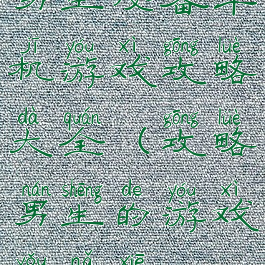 jī yóu xì gōng lüè
机游戏攻略
dà quán gōng lüè
大全（攻略
nán shēng de yóu xì
男生的游戏
yǒu nǎ xiē